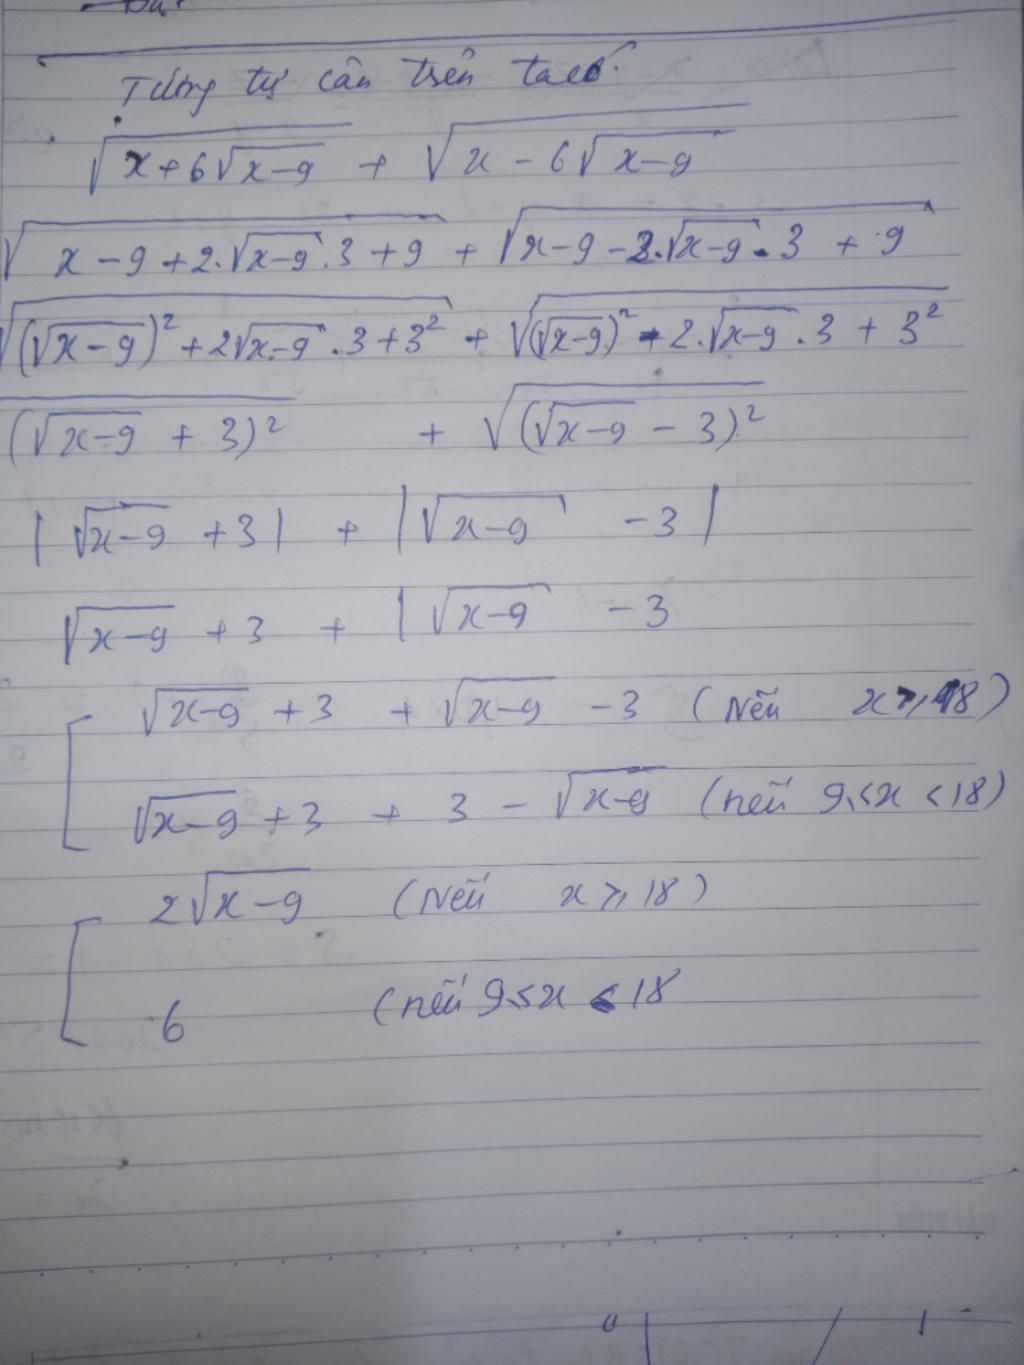 Tương tự căn trên ta có.
√(x+6√(x-9)) + √(x - 6√(x-9))
√(x-9+2.√(x-9).3+9) + √(x-9-2.√(x-9).3 + 9)
√((√(x-9))²+2√(x-9).3+3²) + √((√(x-9))² - 2.√(x-9).3 + 3²)
√((√(x-9) + 3)²) + √((√(x-9) - 3)²)
|√(x-9) +3| + |√(x-9) -3|
√(x-9) +3 + |√(x-9) -3
[ √(x-9) +3 + √(x-9) -3 (Nếu x ⩾ 18)
√(x-9) +3 + 3 - √(x-9) (nếu 9 ⩽ x < 18)
[ 2√(x-9) (Nếu x ⩾ 18)
6 (nếu 9 ⩽ x < 18